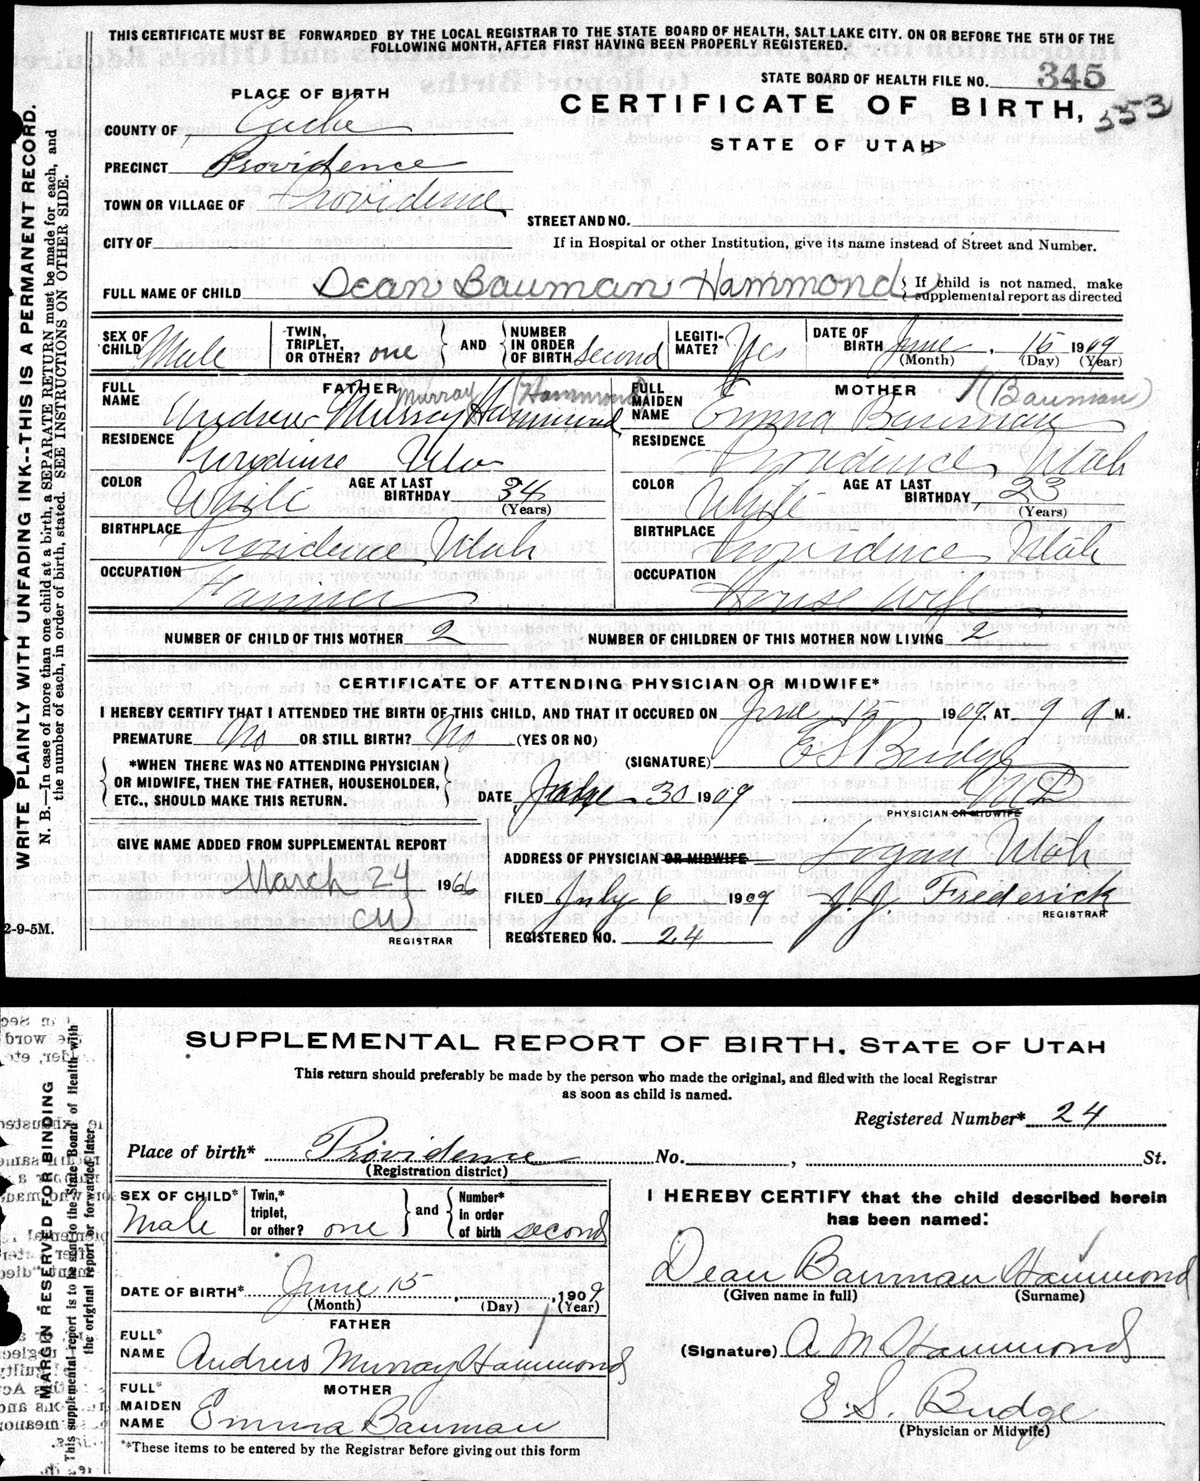 THIS CERTIFICATE MUST BE FORWARDED BY THE LOCAL REGISTRAR TO THE STATE BOARD OF HEALTH, SALT LAKE CITY. ON OR BEFORE THE 5TH OF THE
FOLLOWING MONTH, AFTER FIRST HAVING BEEN PROPERLY REGISTERED.
STATE BOARD OF HEALTH FILE NO. 345
PLACE OF BIRTH
CERTIFICATE OF BIRTH, 353
STATE OF UTAH
COUNTY OF Cache
PRECINCT Providence
TOWN OR VILLAGE OF Providence
STREET AND NO.
CITY OF
If in Hospital or other Institution, give its name instead of Street and Number.
FULL NAME OF CHILD Dean Bauman Hammond { If child is not named, make supplemental report as directed
SEX OF CHILD Male TWIN, TRIPLET, OR OTHER? one } AND { NUMBER IN ORDER OF BIRTH second LEGITI-MATE? Yes DATE OF BIRTH June 15 1909
(Month) (Day) (Year)
FATHER
FULL NAME Andrew Murray Hammond Murray (Hammond)
MOTHER
FULL MAIDEN NAME Emma Bauman (Bauman)
RESIDENCE Providence Utah
RESIDENCE Providence Utah
COLOR White AGE AT LAST BIRTHDAY 34 (Years)
COLOR White AGE AT LAST BIRTHDAY 23 (Years)
BIRTHPLACE Providence Utah
BIRTHPLACE Providence Utah
OCCUPATION Farmer
OCCUPATION House wife
NUMBER OF CHILD OF THIS MOTHER 2 NUMBER OF CHILDREN OF THIS MOTHER NOW LIVING 2
CERTIFICATE OF ATTENDING PHYSICIAN OR MIDWIFE*
I HEREBY CERTIFY THAT I ATTENDED THE BIRTH OF THIS CHILD, AND THAT IT OCCURED ON June 15 1909, AT 9 A M.
PREMATURE No OR STILL BIRTH? No (YES OR NO)
(SIGNATURE) E S Budge MD
PHYSICIAN OR MIDWIFE
{ *WHEN THERE WAS NO ATTENDING PHYSICIAN OR MIDWIFE, THEN THE FATHER, HOUSEHOLDER, ETC., SHOULD MAKE THIS RETURN. }
DATE 30 1909
GIVE NAME ADDED FROM SUPPLEMENTAL REPORT
March 24 1966
CW
REGISTRAR
ADDRESS OF PHYSICIAN OR MIDWIFE Logan Utah
FILED July 6 1909 Frederick
REGISTRAR
REGISTERED NO. 24
WRITE PLAINLY WITH UNFADING INK--THIS IS A PERMANENT RECORD.
N. B.—In case of more than one child at a birth, a SEPARATE RETURN must be made for each, and
the number of each, in order of birth, stated. SEE INSTRUCTIONS ON OTHER SIDE.
2-9-5M.
SUPPLEMENTAL REPORT OF BIRTH, STATE OF UTAH
This return should preferably be made by the person who made the original, and filed with the local Registrar
as soon as child is named.
Registered Number* 24
Place of birth* Providence No. , St.
(Registration district)
SEX OF CHILD* Male Twin,* triplet, or other? one } and { Number* in order of birth second
DATE OF BIRTH* June 15, 1909
(Month) (Day) (Year)
FATHER
FULL* NAME Andrew Murray Hammond
MOTHER
FULL* MAIDEN NAME Emma Bauman
**These items to be entered by the Registrar before giving out this form
I HEREBY CERTIFY that the child described herein
has been named:
Dean Bauman Hammond
(Given name in full) (Surname)
(Signature) A M Hammond
E. S. Budge
(Physician or Midwife)
MARGIN RESERVED FOR BINDING
This supplemental report is to be sent to the State Board of Health with
the original report or forwarded later